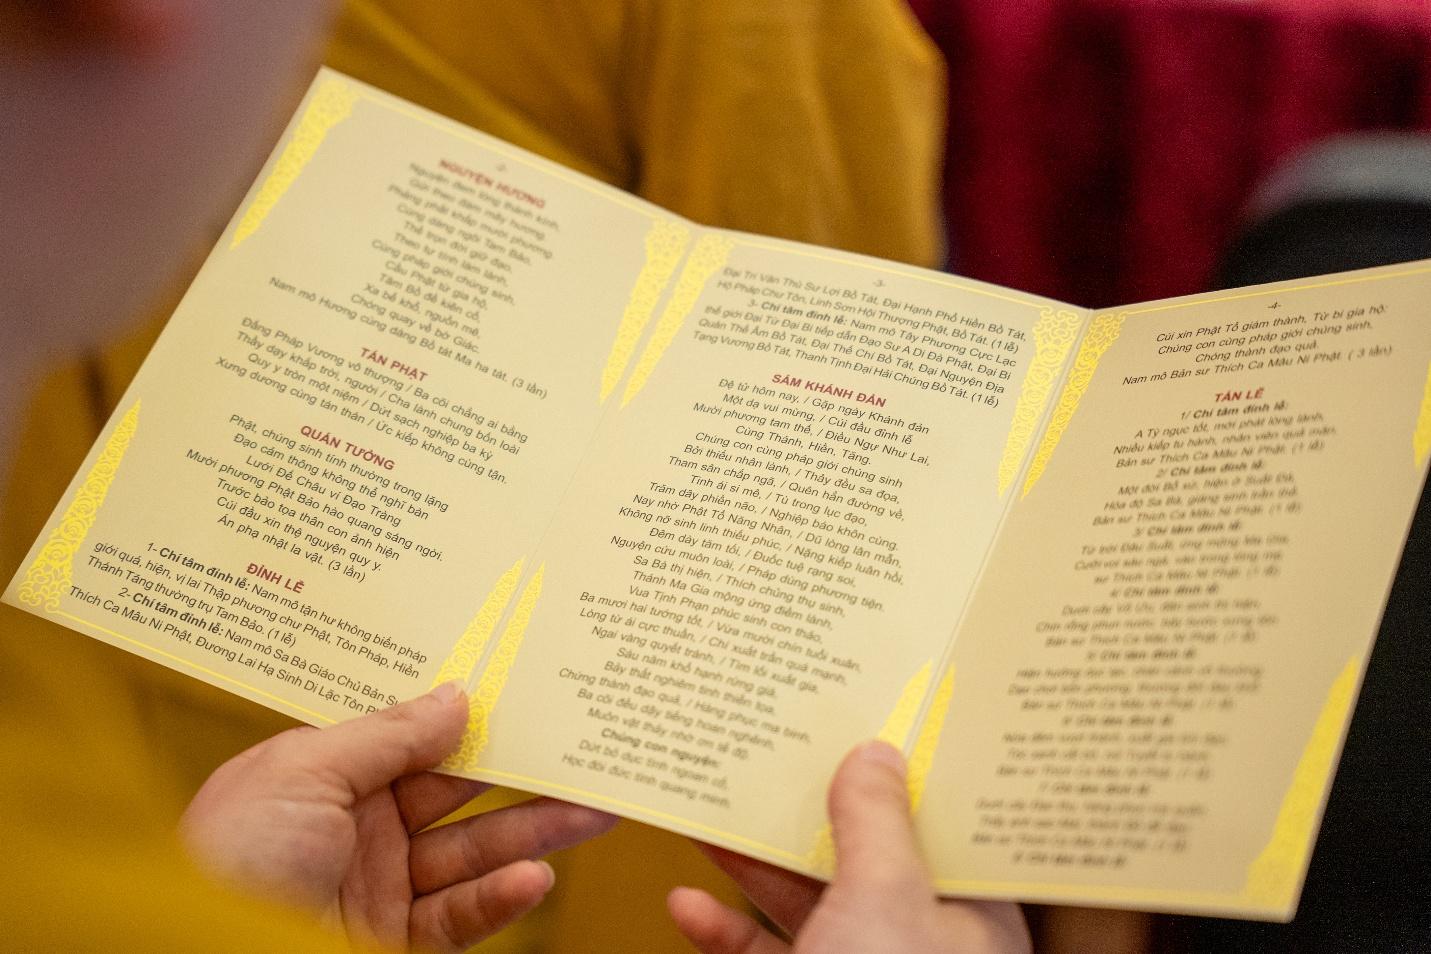 -2-
NGUYỆN HƯƠNG
Nguyện đem lòng thành kính,
Gửi theo đám mây hương,
Phảng phất khắp mười phương
Cúng dàng ngôi Tam Bảo,
Thề trọn đời giữ đạo,
Theo tự tính làm lành,
Cùng pháp giới chúng sinh,
Cầu Phật từ gia hộ,
Tâm Bồ đề kiên cố,
Xa bể khổ, nguồn mê,
Chóng quay về bờ Giác.
Nam mô Hương cúng dàng Bồ tát Ma ha tát. (3 lần)
TÁN PHẬT
Đấng Pháp Vương vô thượng / Ba cõi chẳng ai bằng
Thầy dạy khắp trời, người / Cha lành chung bốn loài
Quy y tròn một niệm / Dứt sạch nghiệp ba kỳ
Xưng dương cùng tán thán / Ức kiếp không cùng tận.
QUÁN TƯỞNG
Phật, chúng sinh tính thường trong lặng
Đạo cảm thông không thể nghĩ bàn
Lưới Đế Châu ví Đạo Tràng
Mười phương Phật Bảo hào quang sáng ngời.
Trước bảo tọa thân con ảnh hiện
Cúi đầu xin thệ nguyện quy y.
Án phạ nhật la vật. (3 lần)
ĐỈNH LỄ
1- Chí tâm đỉnh lễ: Nam mô tận hư không biến pháp
giới quá, hiện, vị lai Thập phương chư Phật, Tôn Pháp, Hiền
Thánh Tăng thường trụ Tam Bảo. (1 lễ)
2- Chí tâm đỉnh lễ: Nam mô Sa Bà Giáo Chủ Bản Sư
Thích Ca Mâu Ni Phật, Đương Lai Hạ Sinh Di Lặc Tôn
-3-
Đại Trí Văn Thù Sư Lợi Bồ Tát, Đại Hạnh Phổ Hiền Bồ Tát,
Hộ Pháp Chư Tôn, Linh Sơn Hội Thượng Phật, Bồ Tát. (1 lễ)
3- Chí tâm đỉnh lễ: Nam mô Tây Phương Cực Lạc
thế giới Đại Từ Đại Bi tiếp dẫn Đạo Sư A Di Đà Phật, Đại Bi
Quán Thế Âm Bồ Tát, Đại Thế Chí Bồ Tát, Đại Nguyện Địa
Tạng Vương Bồ Tát, Thanh Tịnh Đại Hải Chúng Bồ Tát. (1 lễ)
SÁM KHÁNH ĐẢN
Đệ tử hôm nay, / Gặp ngày Khánh đản
Một dạ vui mừng, / Cúi đầu đỉnh lễ
Mười phương tam thế, / Điều Ngự Như Lai,
Cùng Thánh, Hiền, Tăng.
Chúng con cùng pháp giới chúng sinh
Bởi thiếu nhân lành, / Thảy đều sa đọa,
Tham sân chấp ngã, / Quên hẳn đường về,
Tình ái si mê, / Tù trong lục đạo,
Trăm dây phiền não, / Nghiệp báo khôn cùng.
Nay nhờ Phật Tổ Năng Nhân, / Dũ lòng lân mẫn,
Không nỡ sinh linh thiếu phúc, / Nặng kiếp luân hồi,
Đêm dày tăm tối, / Đuốc tuệ rạng soi,
Nguyện cứu muôn loài, / Pháp dùng phương tiện.
Sa Bà thị hiện, / Thích chủng thụ sinh,
Thánh Ma Gia mộng ứng điềm lành,
Vua Tịnh Phạn phúc sinh con thảo,
Ba mươi hai tướng tốt, / Vừa mười chín tuổi xuân,
Lòng từ ái cực thuần, / Chí xuất trần quá mạnh,
Ngai vàng quyết tránh, / Tìm lối xuất gia,
Sáu năm khổ hạnh rừng già,
Bảy thất nghiêm tinh thiền tọa,
Chứng thành đạo quả, / Hàng phục ma binh,
Ba cõi đều dậy tiếng hoan nghênh,
Muôn vật thảy nhờ ơn tế độ.
Chúng con nguyện:
Dứt bỏ dục tình ngoan cố,
Học đòi đức tính quang minh,
-4-
Cúi xin Phật Tổ giám thành, Từ bi gia hộ:
Chúng con cùng pháp giới chúng sinh,
Chóng thành đạo quả.
Nam mô Bản sư Thích Ca Mâu Ni Phật. ( 3 lần)
TÁN LỄ
1/ Chí tâm đỉnh lễ:
A Tỳ ngục tốt, mới phát lòng lành,
Nhiều kiếp tu hành, nhân viên quả mãn,
Bản sư Thích Ca Mâu Ni Phật. (1 lễ)
2/ Chí tâm đỉnh lễ:
Một đời Bổ xứ, hiện ở Suất Đà,
Hóa độ Sa Bà, giáng sinh trần thế.
Bản sư Thích Ca Mâu Ni Phật. (1 lễ)
3/ Chí tâm đỉnh lễ:
Từ trời Đâu Suất, ứng mộng Ma Gia,
Cưỡi voi sáu ngà, vào trong lòng mẹ.
sư Thích Ca Mâu Ni Phật. (1 lễ)
4/ Chí tâm đỉnh lễ:
Bản sư Thích Ca Mâu Ni Phật. (1 lễ)
5/ Chí tâm đỉnh lễ:
Bản sư Thích Ca Mâu Ni Phật. (1 lễ)
6/ Chí tâm đỉnh lễ:
Bản sư Thích Ca Mâu Ni Phật. (1 lễ)
7/ Chí tâm đỉnh lễ:
Bản sư Thích Ca Mâu Ni Phật. (1 lễ)
8/ Chí tâm đỉnh lễ: